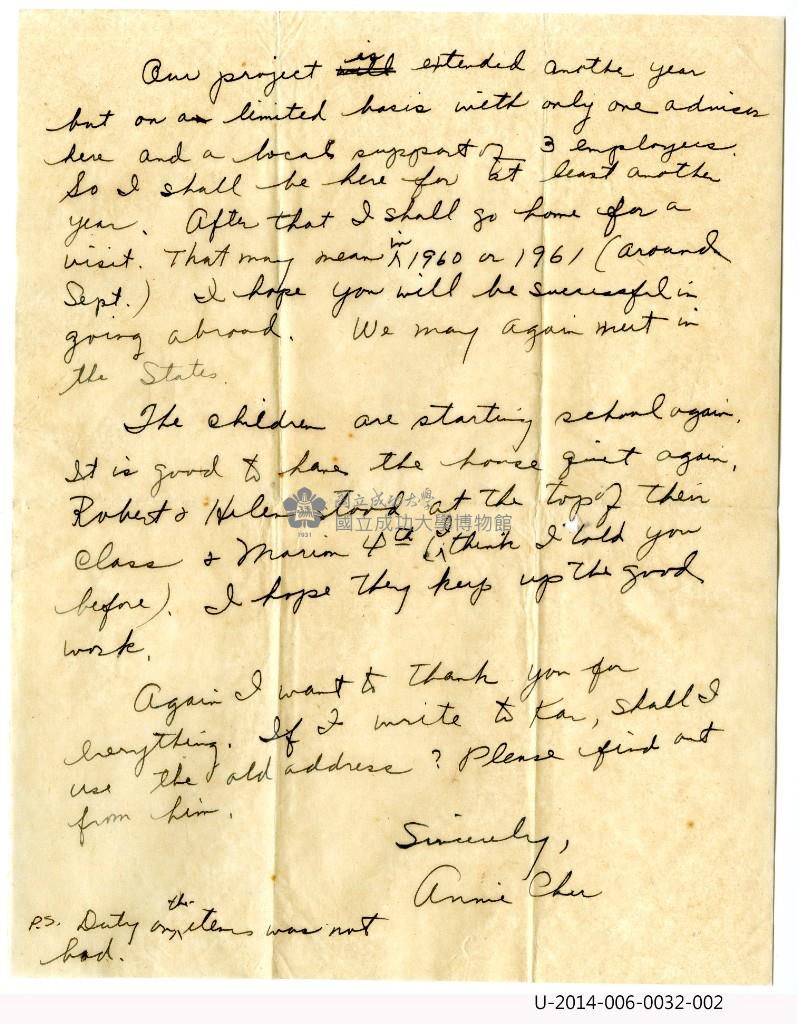 Our project is extended anothe year
but on a limited basis with only one advisor
here and a local support of 3 employees.
So I shall be here for at least another
year. After that I shall go home for a
visit. That may mean in 1960 or 1961 (around
Sept.) I hope you will be successful in
going abroad. We may again meet in
the States.
The children are starting school again.
It is good to have the house quiet again.
Robert & Helen stood at the top of their
class & Marion 4th (I think I told you
before). I hope they keep up the good
work.
Again I want to thank you for
everything. If I write to Kao, shall I
use the old address? Please find out
from him.
Sincerely,
Annie Chu
P.S. Duty on the items was not
bad.
國立成功大學
國立成功大學博物館
1931
U-2014-006-0032-002